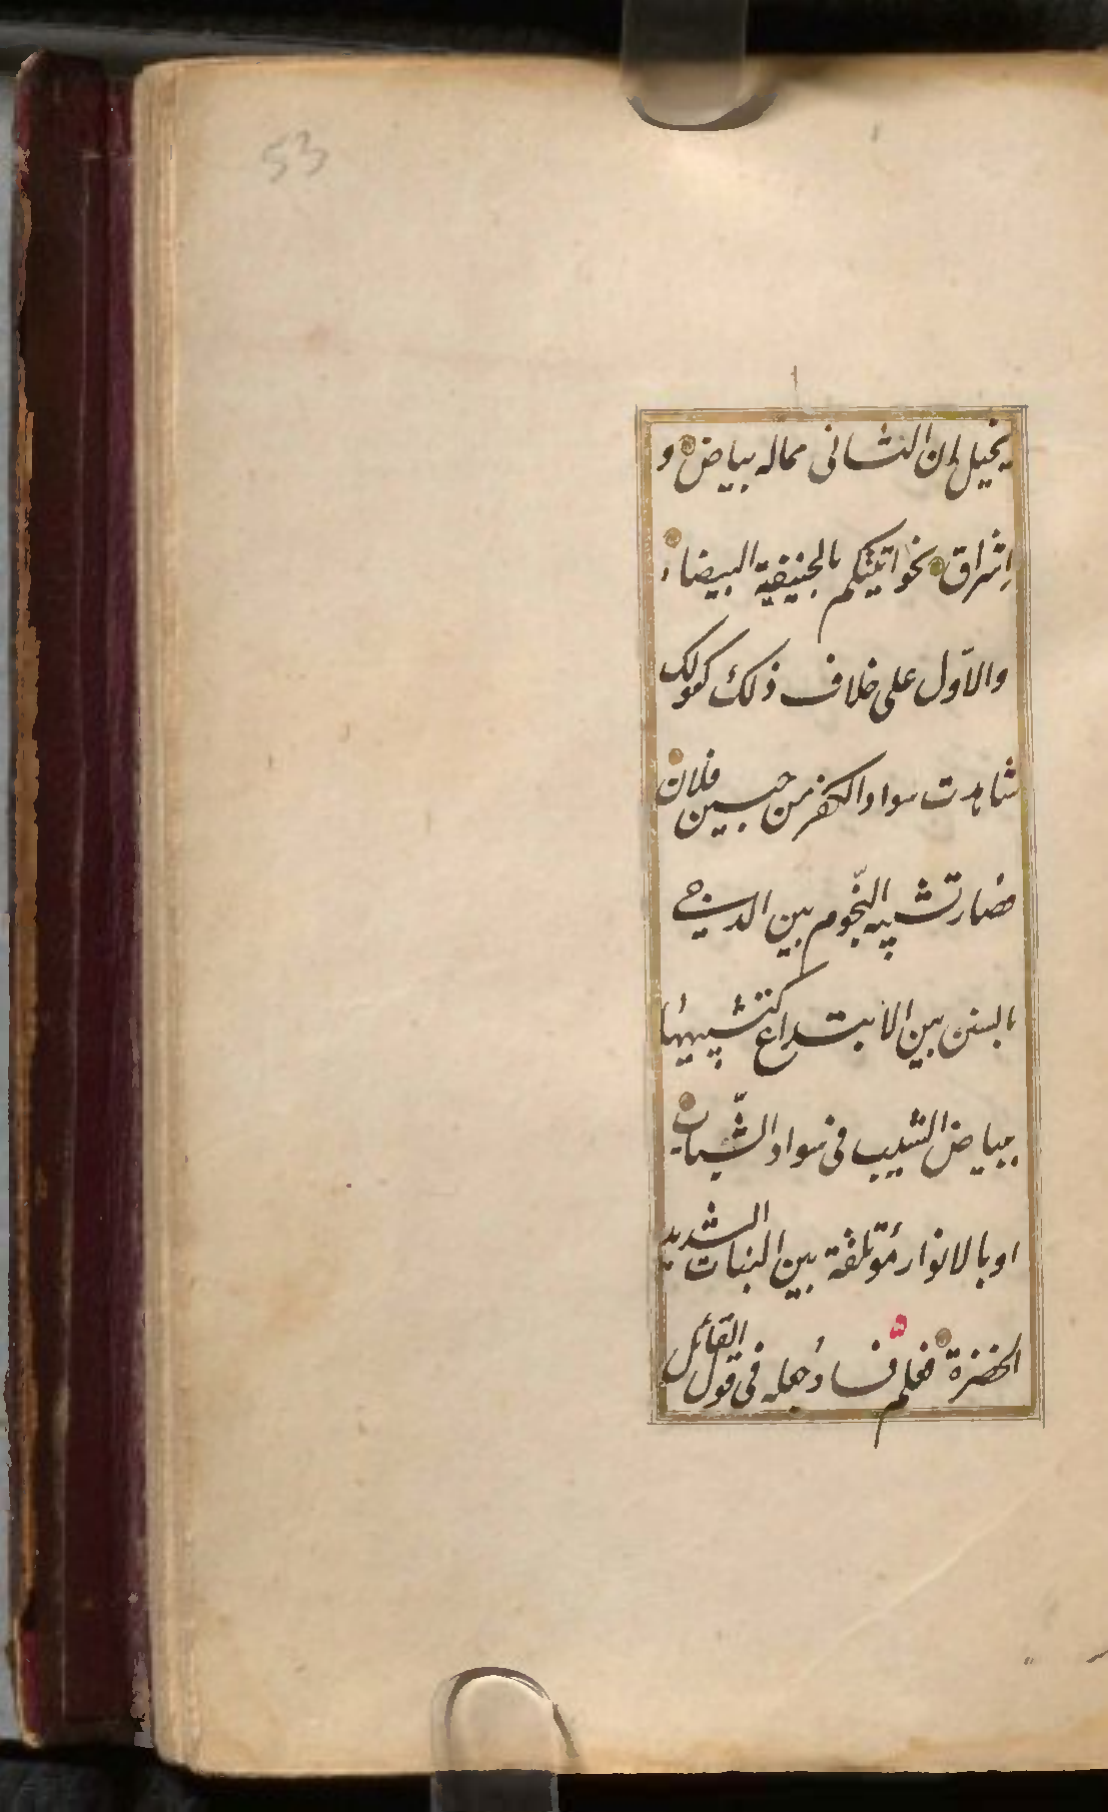 53
يخيل ان الثانى مماله بياض و
اشراق نحو اتيتكم بالحنيفية البيضاء
والاوّل على خلاف ذلك كقولك
شاهدت سواد الكفر من جبين فلان
فصار تشبيه النّجوم بين الدجى
بالسنن بين الابتداع كتشبيهها
ببياض الشيب فى سواد الشّباب
او بالانوار مؤتلقة بين النبات الشديد
الخضرة فعلم فساد جعله فى قول القائل